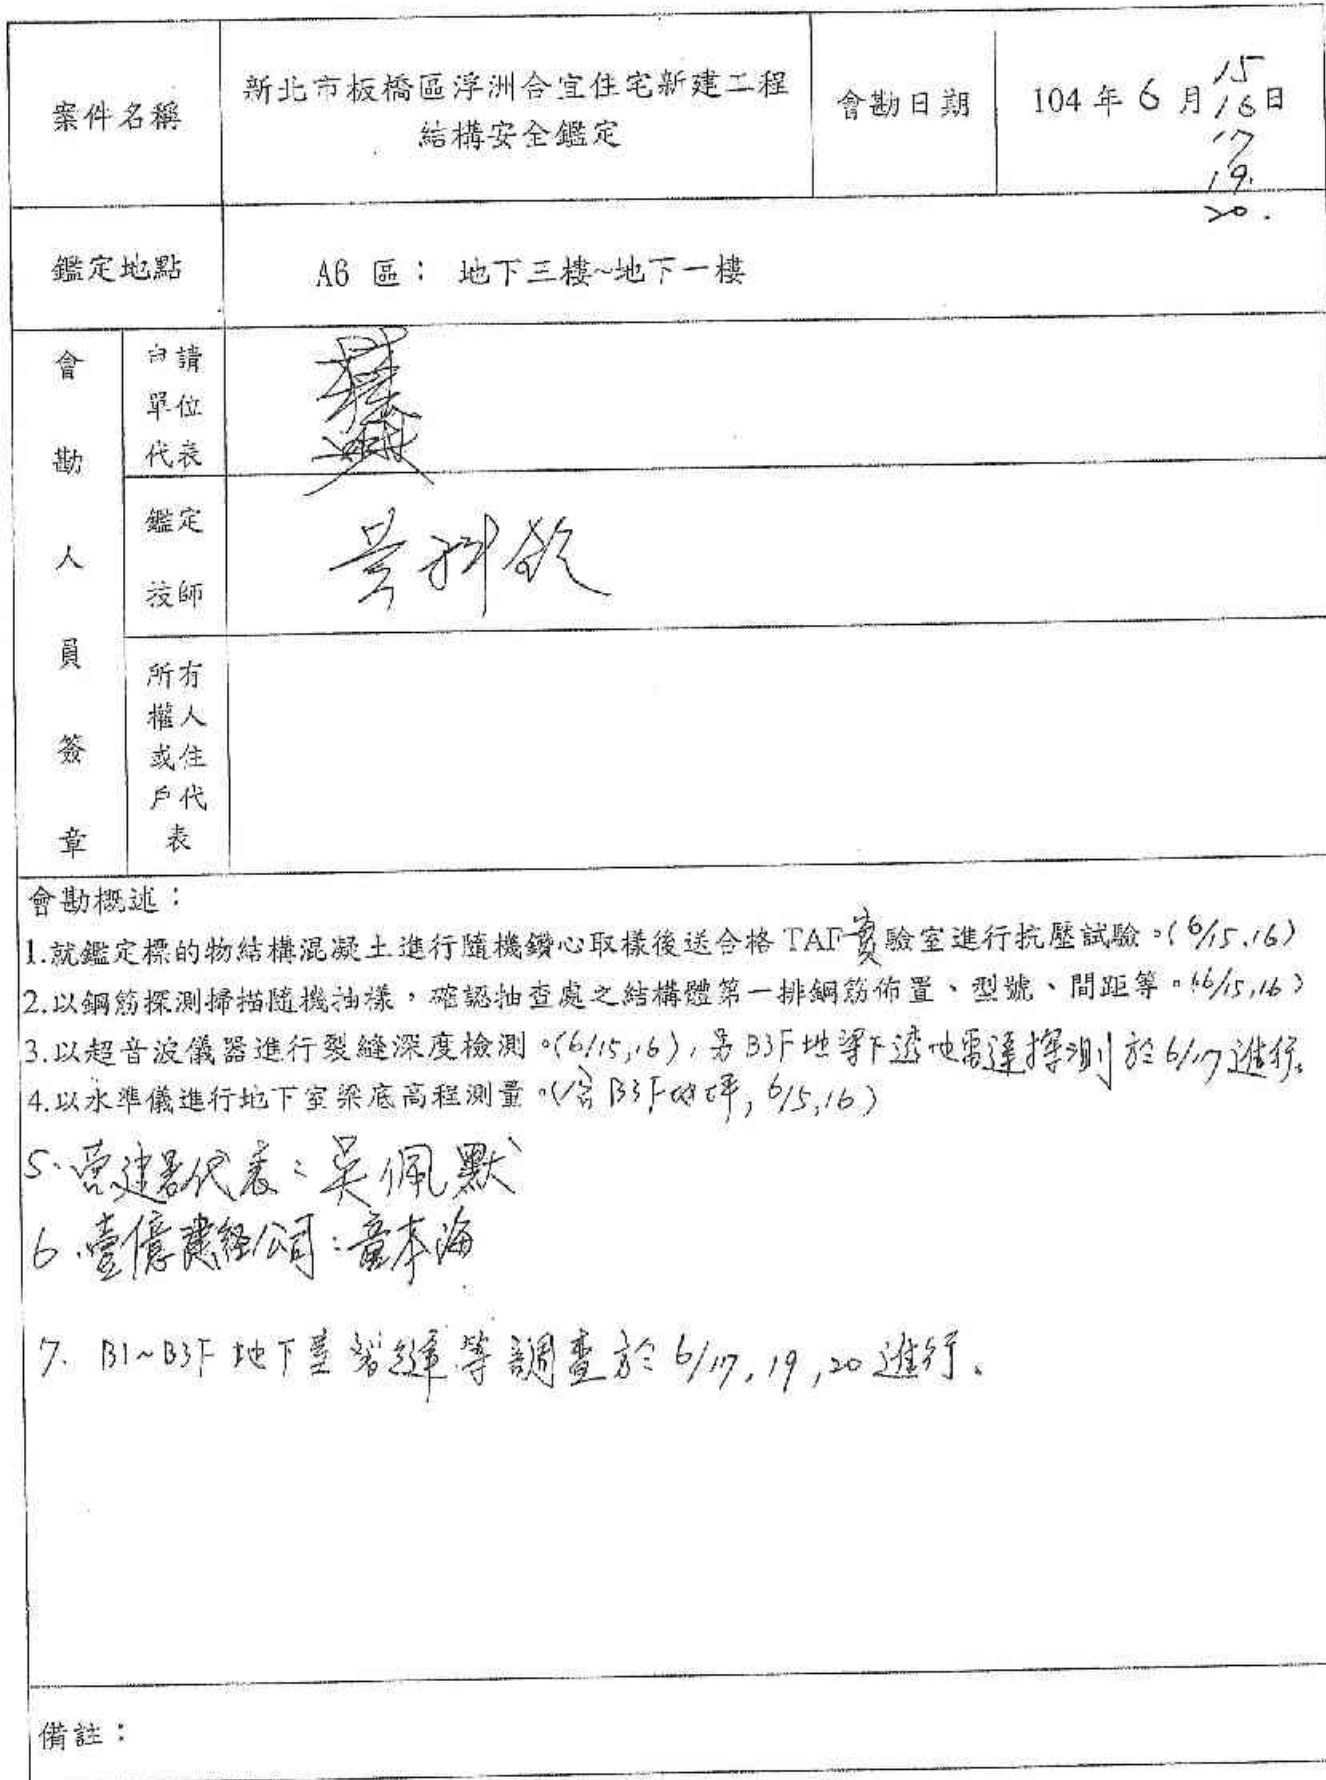 案件名稱
新北市板橋區浮洲合宜住宅新建工程
結構安全鑑定
會勘日期
104年6月15日
16
17
19.
20.
鑑定地點
A6 區： 地下三樓~地下一樓
會勘人員簽章
申請
單位
代表
鑑定
技師
所有
權人
或住
戶代
表
會勘概述：
1.就鑑定標的物結構混凝土進行隨機鑽心取樣後送合格 TAF實驗室進行抗壓試驗。(6/15,16)
2.以鋼筋探測掃描隨機抽樣，確認抽查處之結構體第一排鋼筋佈置、型號、間距等。(6/15,16)
3.以超音波儀器進行裂縫深度檢測。(6/15,16),另B3F地梁下透地雷達探測於6/17進行。
4.以水準儀進行地下室梁底高程測量。(含B3F地坪,6/15,16)
5.營建署代表：吳佩默
6.壹億建經公司：童本海
7. B1~B3F地下室裂縫等調查於6/17,19,20進行。
備註：